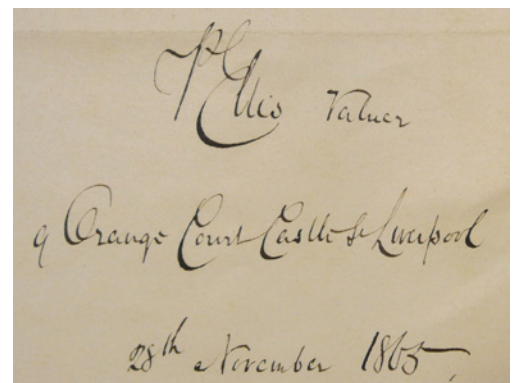 P Ellis Valuer
9 Orange Court Castle St Liverpool
28th November 1865